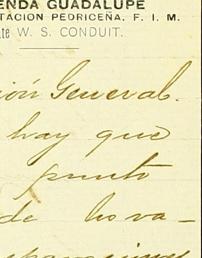 ENDA GUADALUPE
TACION PEDRICEÑA, F. I. M.
te W. S. CONDUIT.
ión General.
hay que
punto
de lleva-